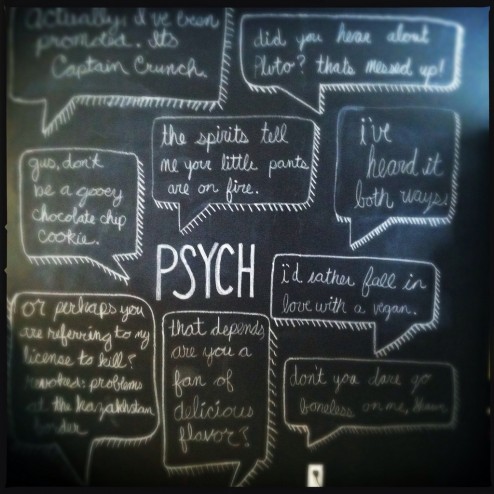 Actually, I've been
promoted. Its
Captain Crunch.
did you hear about
Pluto? thats messed up!
the spirits tell
me your little pants
are on fire.
i've
heard it
both ways
gus, don't
be a gooey
chocolate chip
cookie.
PSYCH
i'd rather fall in
love with a vegan.
or perhaps you
are referring to my
license to kill?
revoked: problems
at the kazakhstan
border
that depends
are you a
fan of
delicious
flavor?
don't you dare go
boneless on me, Shawn